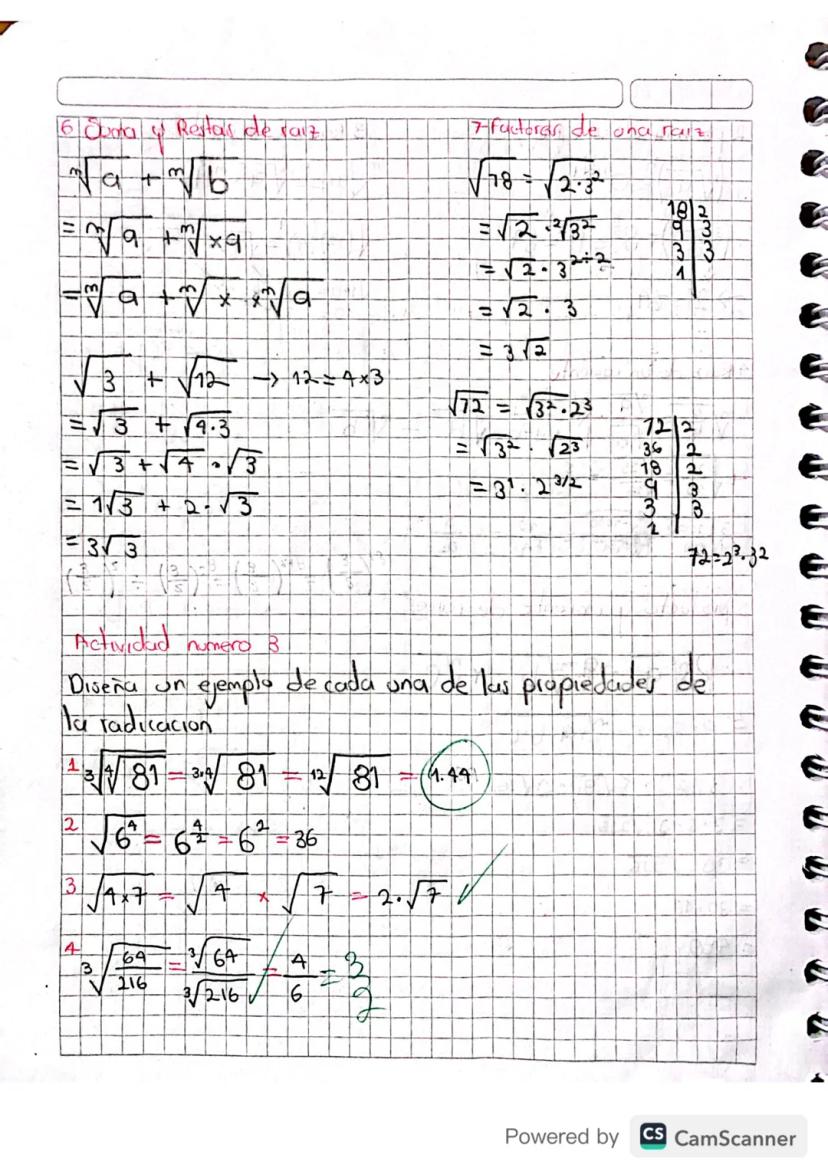 6 Suma y Restas de raiz
ᵐ√a + ᵐ√b
= ᵐ√a + ᵐ√xa
= ᵐ√a + ᵐ√x × ᵐ√a
√3 + √12 → 12 = 4×3
= √3 + √4·3
= √3 + √4 · √3
= 1√3 + 2·√3
= 3√3
7-factores de una raiz
√18 = √2·3²
= √2 · ²√3²
= √2 · 3²÷²
= √2 · 3
= 3√2
18|2
9|3
3|3
1|
√72 = √3²·2³
= √3² · √2³
= 3¹ · 2³/²
72|2
36|2
18|2
9|3
3|3
1|
72=2³·32
Actividad numero 3
Diseña un ejemplo de cada una de las propiedades de
la radicacion
1 ³√⁴√81 = ³·⁴√81 = ¹²√81 = 1.44
2 √6⁴ = 6^4/2 = 6² = 36
3 √4×7 = √4 × √7 = 2·√7 ✓
4 ³√64/216 = ³√64/³√216 ✓ = 4/6 = 3/2
Powered by CS CamScanner